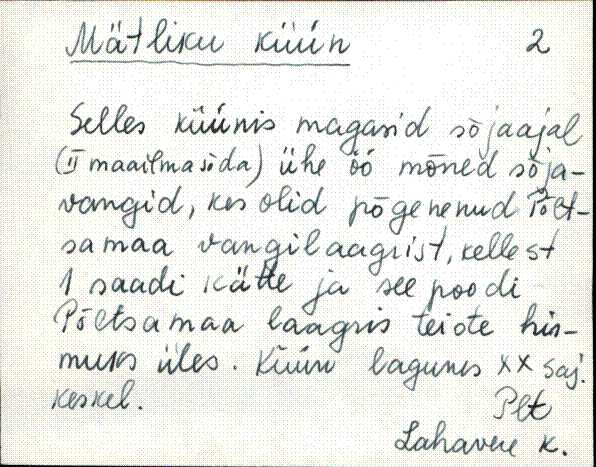 Mätliku küün 2
Selles küünis magasid sõjaajal
(II maailmasõda) ühe öö mõned sõja-
vangid, kes olid põgenenud Põlt-
samaa vangilaagrist, kellest
1 saadi kätte ja see poodi
Põltsamaa laagris teiste hir-
muks üles. Küün lagunes XX saj.
keskel.
Plt
Lahavere k.